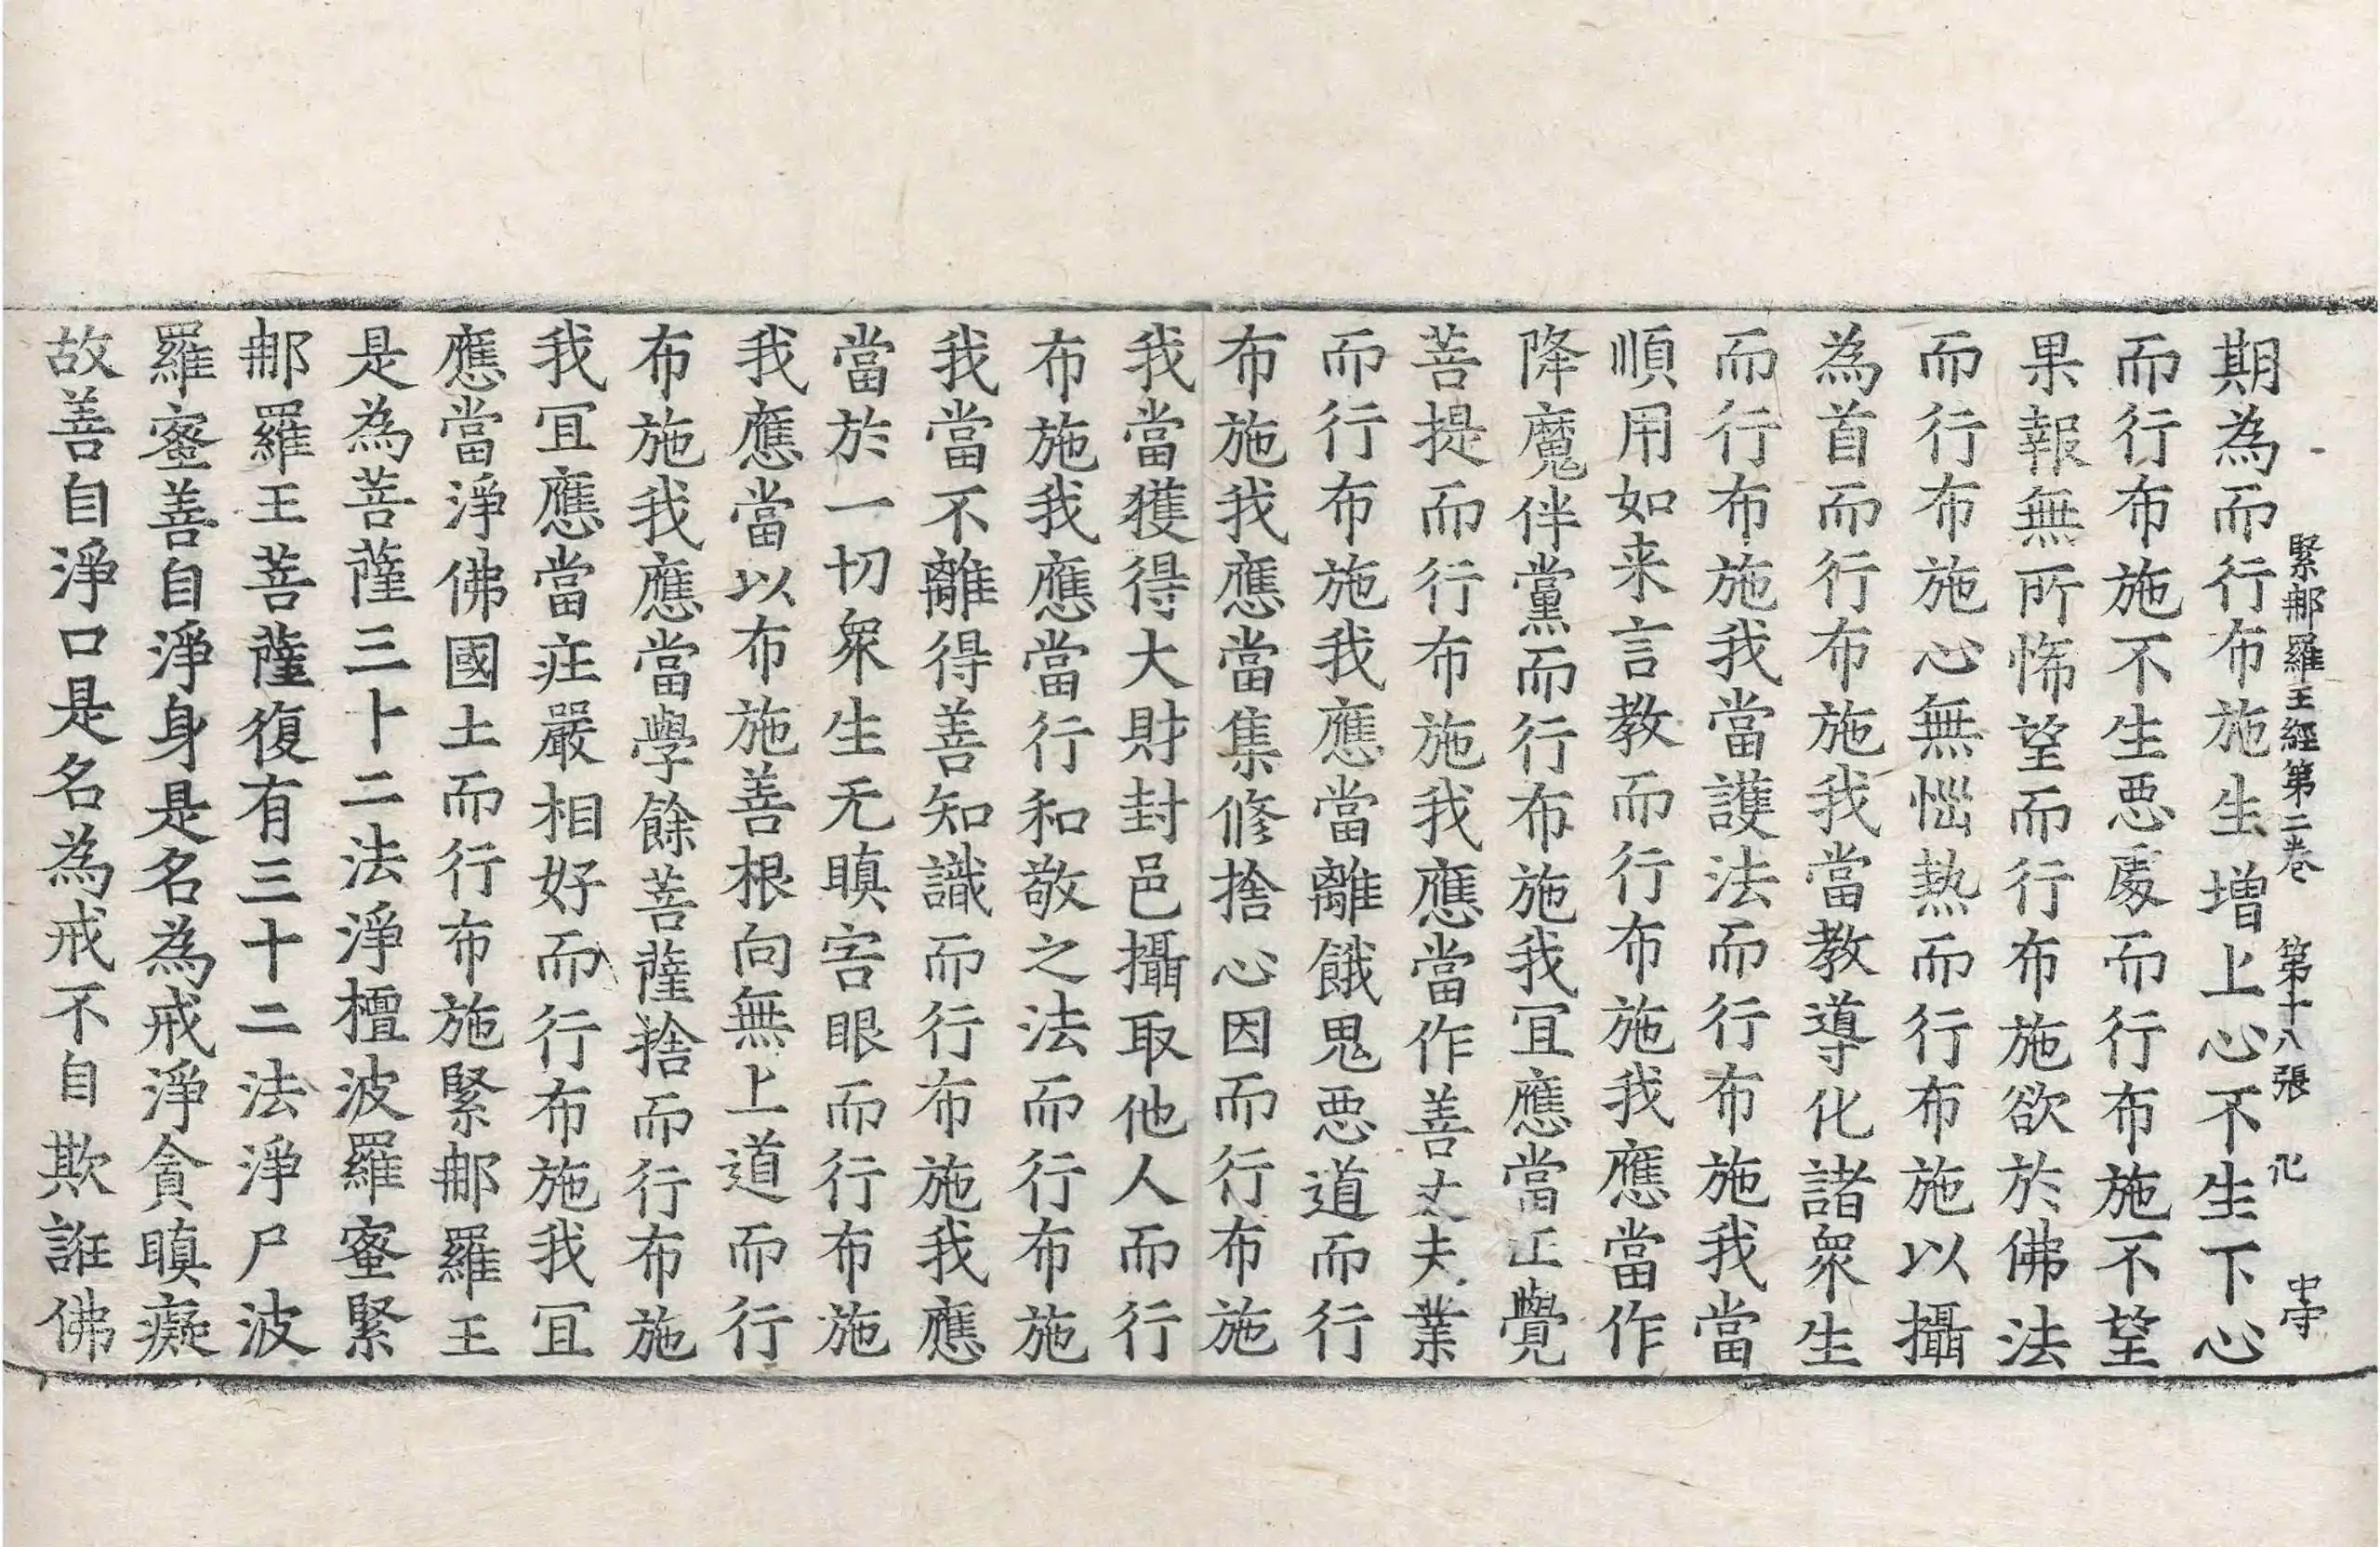 緊那羅王經第二卷　第十八張　化　中守
期為而行布施生增上心不生下心
而行布施不生惡處而行布施不望
果報無所悕望而行布施欲於佛法
而行布施心無惱熱而行布施以攝
為首而行布施我當教導化諸衆生
而行布施我當護法而行布施我當
順用如来言教而行布施我應當作
降魔伴黨而行布施我冝應當正覺
菩提而行布施我應當作善丈夫業
而行布施我應當離餓鬼惡道而行
布施我應當集修捨心因而行布施
我當獲得大財封邑攝取他人而行
布施我應當行和敬之法而行布施
我當不離得善知識而行布施我應
當於一切衆生无瞋害眼而行布施
我應當以布施善根向無上道而行
布施我應當學餘菩薩捨而行布施
我冝應當莊嚴相好而行布施我冝
應當淨佛國土而行布施緊那羅王
是為菩薩三十二法淨檀波羅蜜緊
那羅王菩薩復有三十二法淨尸波
羅蜜善自淨身是名為戒淨貪瞋癡
故善自淨口是名為戒不自欺誑佛